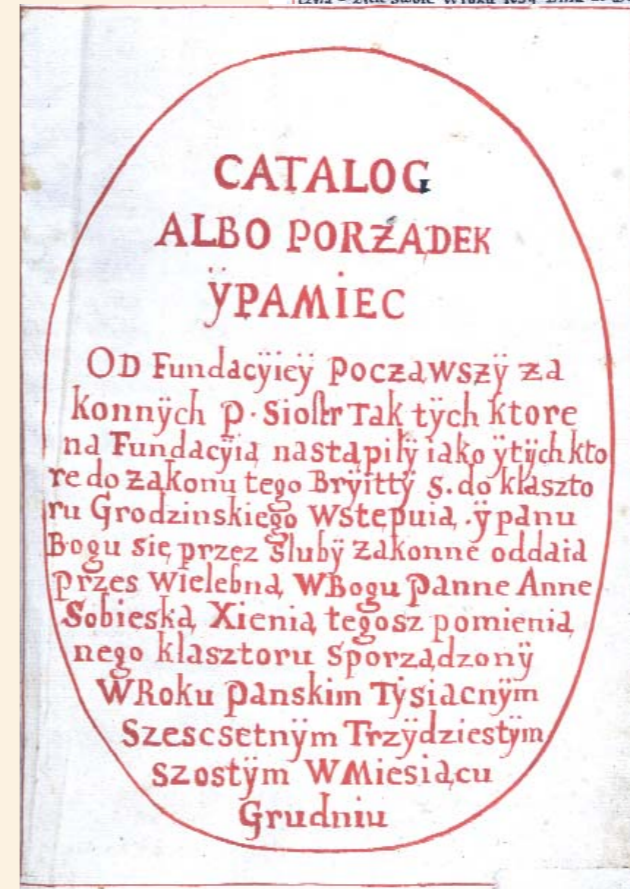 CATALOG
ALBO PORZĄDEK
ÿPAMIEC
OD Fundacÿieÿ Począwszÿ za
konnÿch P. Siostr Tak tÿch ktore
na Fundacÿią nastąpiłÿ iako ÿtÿch kto
re do zakonu tego Brÿittÿ S. do klaszto
ru Grodzinskiego Wstepuią .ÿpanu
Bogu się przezŚlubÿ zakonne oddaią
Przes Wielebną WBogu Panne Anne
Sobieską Xienią tegosz pomienią
nego klasztoru Sporządzonÿ
WRoku Panskim Tÿsiącnÿm
Szescsetnÿm Trzÿdziestÿm
szostÿm WMiesiącu
Grudniu